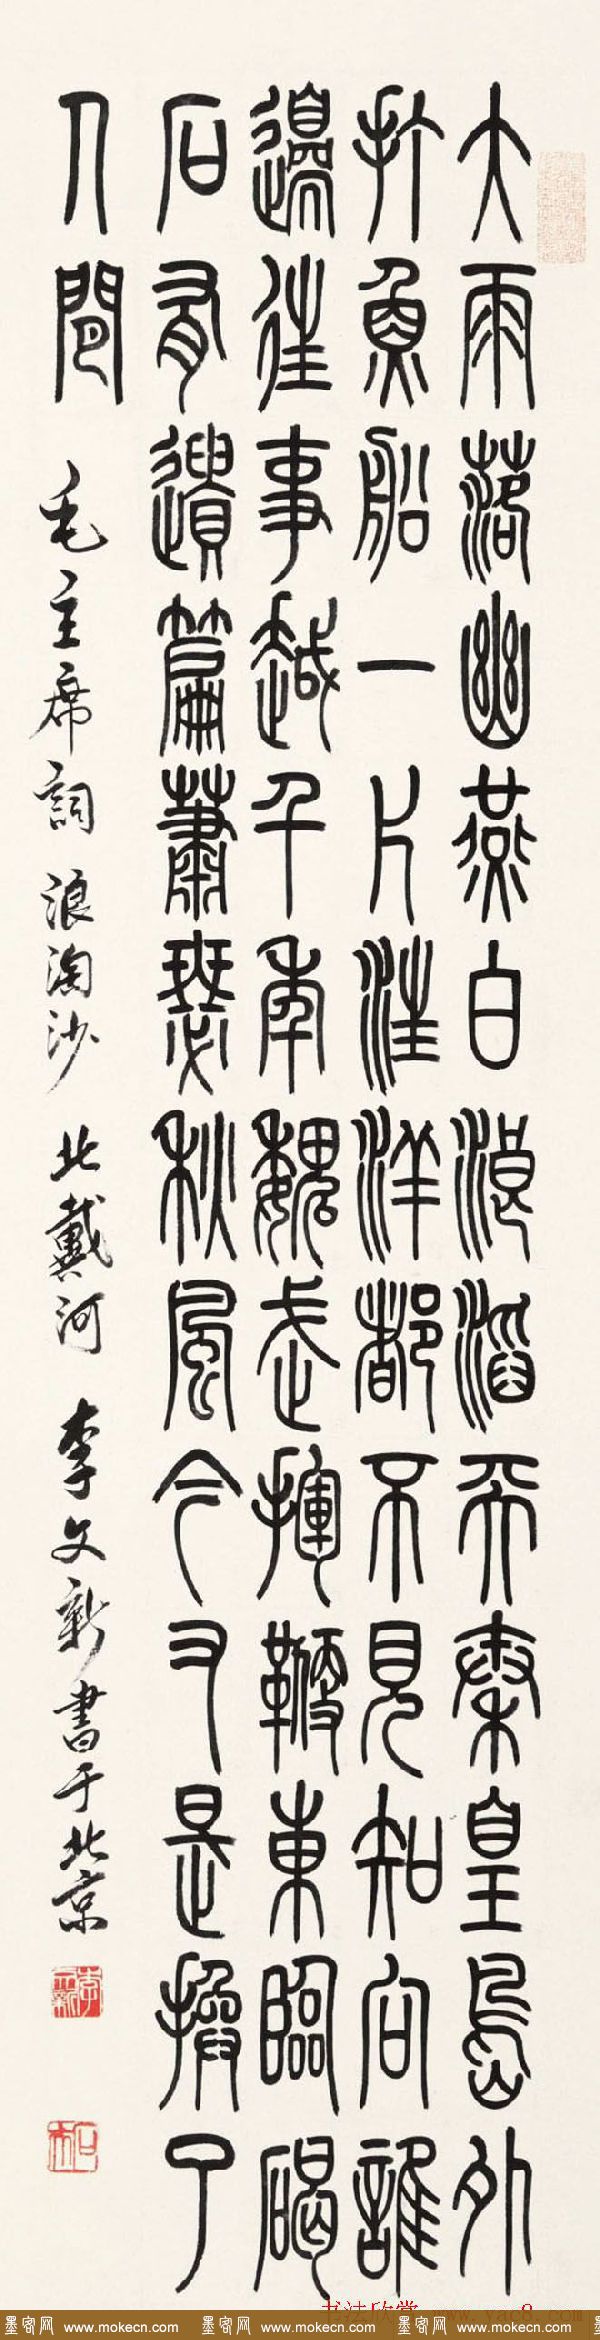 大雨落幽燕白浪滔天秦皇島外
打魚船一片汪洋都不見知向誰
邊往事越千年魏武揮鞭東臨碣
石有遺篇蕭瑟秋風今又是換了
人間 毛主席詞 浪淘沙 北戴河 李文新書于北京
书法欣赏 www.yac8.com
墨客网 www.mokecn.com 墨客网 www.mokecn.com 墨客网 www.mokecn.com 墨客网 www.mokecn.com